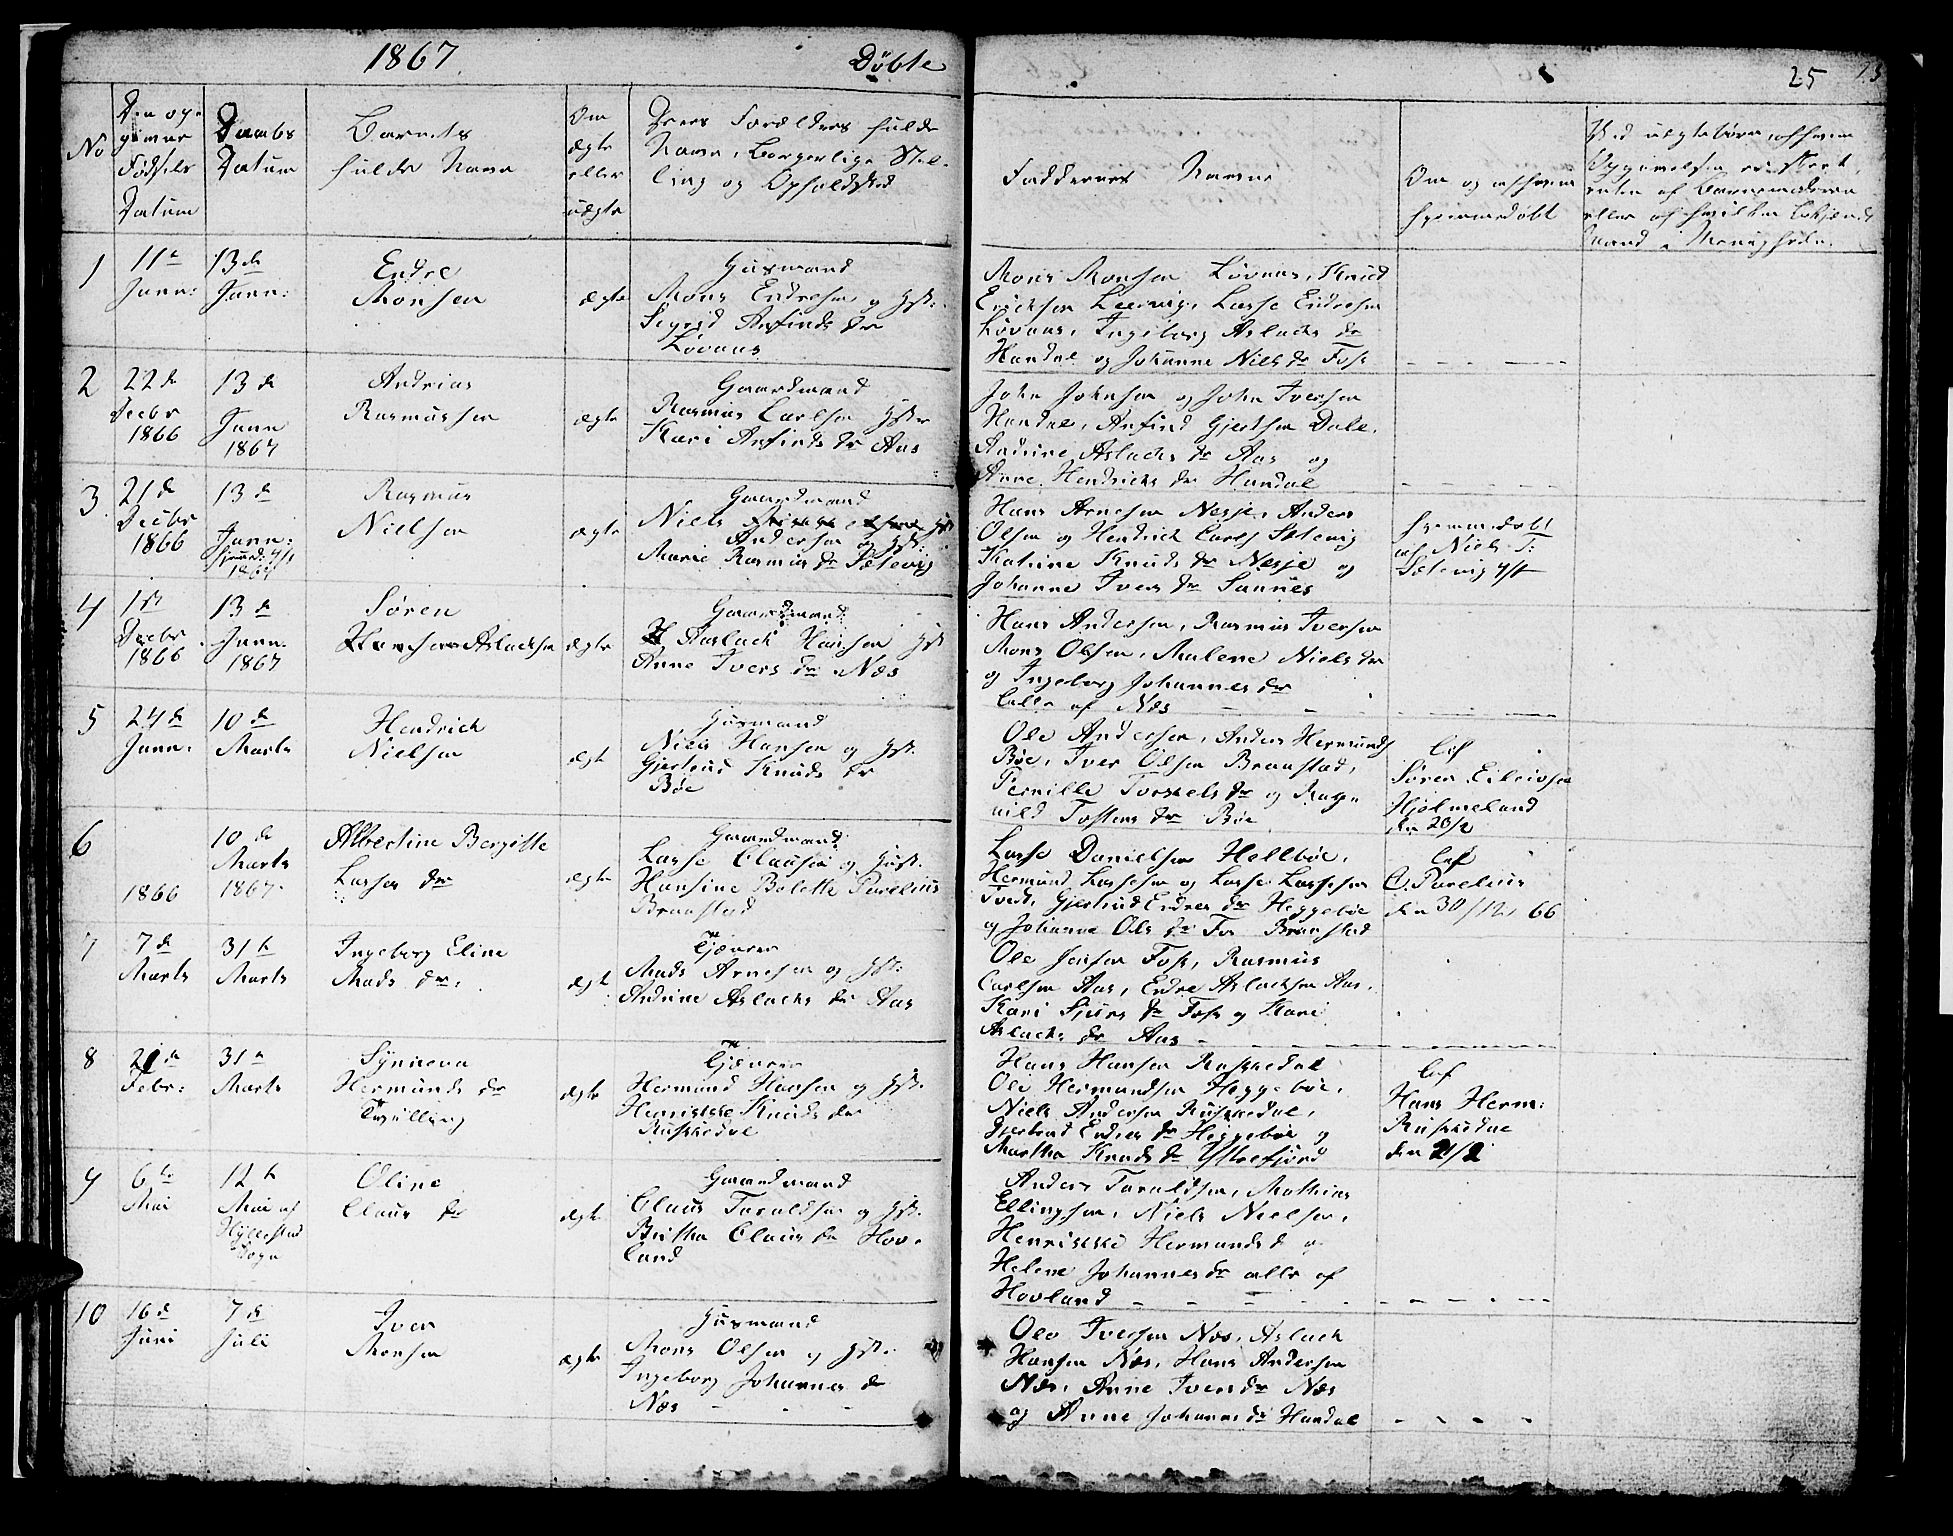 1867 Døbte
25
No
Den op-
givne
Fødsels
Datum
Daabs
Datum
Barnets
fulde Navn
Om
ægte
eller
uægte
Deres Forældres fulde
Navn, Borgerlige Stil-
ling og Opholdsted
Faddernes Navne
Om og af hvem
hjemmedøbt
Ved uægte børn, af hvem
Opgivelsen er skeet,
enten af Barnemoderen
eller af hvilken bekjendt
Mand i Menigheden.
1
11te
Janr:
13de
Janr:
Endre
Monsen
ægte
Husmand
Mons Endresen og Hst:
Sigrid Anfinds dr
Løvaas
Mons Monsen Løvaas, Knud
Ericksen Leervig, Lasse Endresen
Løvaas, Ingeborg Aslachs dr
Handal og Johanne Niels dr Foss
2
22de
Decbr
1866
13de
Janr
1867
Andrias
Rasmussen
ægte
Gaardmand
Rasmus Carlsen Hstr
Kari Anfinds dr Aas
John Johnsen og John Iversen
Handal, Anfind Gjertsen Dale,
Andrine Aslachs dr Aas og
Anne Hendricks dr Handal
3
21de
Decbr
1866
13de
Janr:
1867
Rasmus
Nielsen
ægte
Gaardmand
Niels
Andersen og Hst:
Marie Rasmus dr Sætevig
Hans Arnesen Nesje, Anders
Olsen og Hendrick Carls Sætevig
Katrine Knuds dr Nesje og
Johanne Ivers dr Sannes
hjemmedøbt
af Niels I:
Sætevig 4/1
4
1ste
Decbr
1866
13de
Janr.
1867
Søren
Aslachsen
ægte
Gaardmand
Aaslack Hansen Hst
Anne Ivers dr Næs
Hans Andersen, Rasmus Iversen
Mons Olsen, Malene Niels dr
og Ingeborg Johannes dr
alle af Næs
5
24de
Janr.
10de
Marts
Hendrick
Nielsen
ægte
Husmand
Niels Hansen og Hst.
Gjertrud Knuds dr
Bøe
Ole Andersen, Anders Hermunds
Bøe, Iver Olsen Branstad,
Pernille Torkels dr og Ragn
nild Tostens dr Bøe
af
Søren Eilevsen
Hjelmeland
den 20/2
6
1866
10de
Marts
1867.
Albertine Bergitte
Lasses dr
ægte
Gaardmand
Lasse Clausen og Hust.
Hansine Bolette Parelius
Branstad
Lasse Danielsen Hellbøe,
Hermund Lassesen og Lasse Lassesen
Tvedt, Gjertrud Endres dr Heggebøe
og Johanne Ols dr Fos Branstad
af
C. Parelius
den 30/12 66
7
7de
Marts
31te
Marts
Ingeborg Eline
Mads dr.
ægte
Tjæner
Mads Arnesen og Hst:
Andrine Aslachs dr Aas
Ole Jensen Foss, Rasmus
Carlsen Aas, Endre Aslachsen Aas,
Kari Sjurs dr Foss og Kari
Aslachs dr Aas
8
21de
Febr:
31te
Marts
Synneva
Hermunds dr
Tvilling
ægte
Tjæner
Hermund Hansen og Hst.
Henrikke Knuds dr
Ruskedal
Hans Hansen Ruskedal
Ole Hermundsen Heggebøe,
Niels Andersen Ruskedal,
Gjertrud Endres dr Heggebøe og
Martha Knuds dr Yttrefjord
af
Hans Herm:
Ruskedal
den 21/2
9
6te
Mai
12te
Mai af
Hyllestad
Sogn
Oline
Claus dr
ægte
Gaardmand
Claus Taraldsen og Hst.
Britha Claus dr Hov-
land
Anders Taraldsen, Mathias
Ellingsen, Niels Nielsen,
Henrikke Hermunds d og
Helene Johannes dr alle af
Hovland
10
16de
Juni
7de
Juli
Iver
Monsen
ægte
Husmand
Mons Olsen og Hst.
Ingeborg Johannes dr
Næs
Ole Iversen Næs, Aslack
Hansen Næs, Hans Andersen
Næs, Anne Ivers dr Næs
og Anne Johannes dr Handal